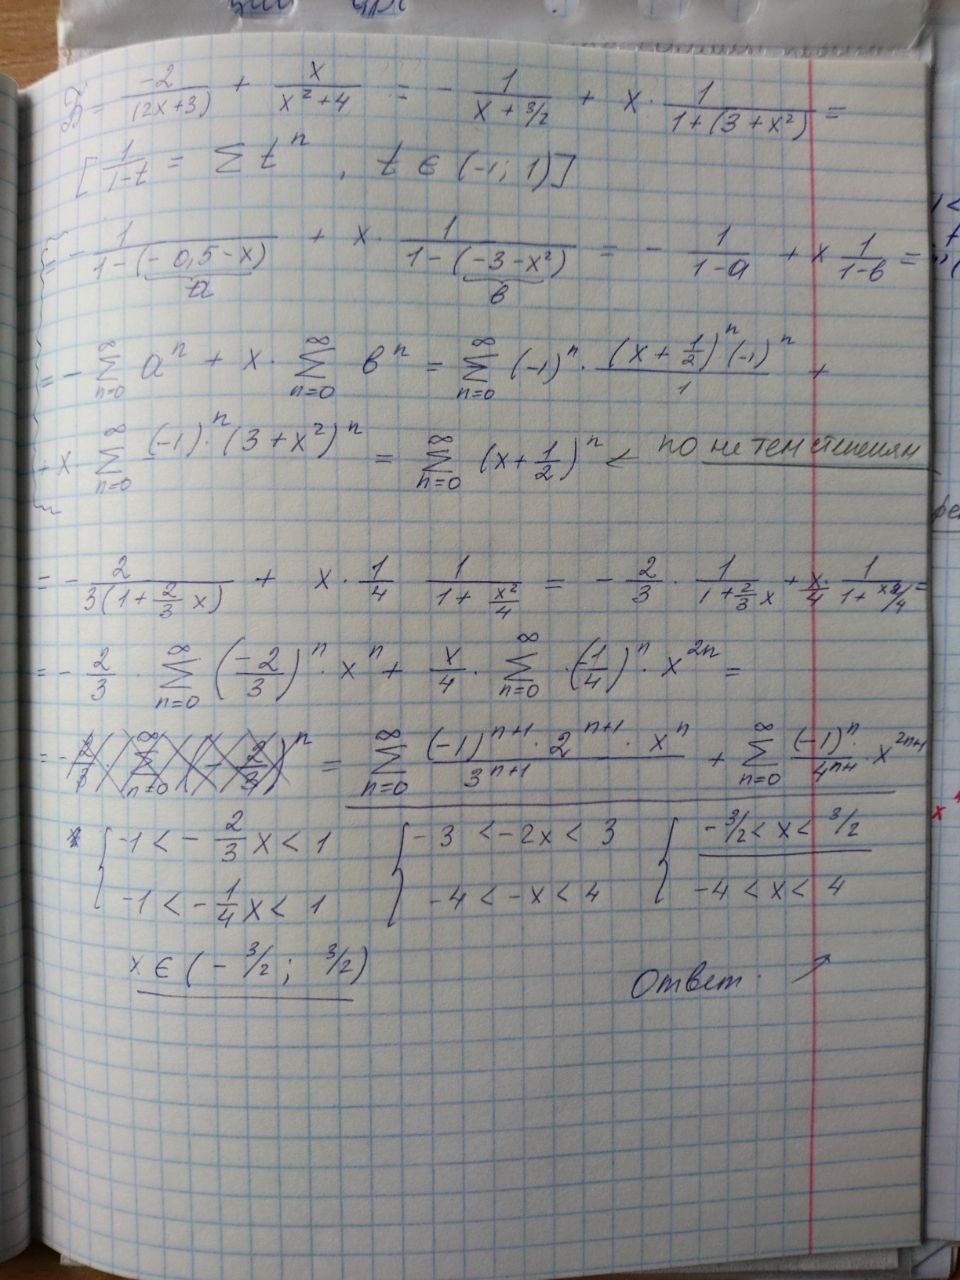 = -2/(2x+3) + x/(x²+4) = - 1/(x+3/2) + x · 1/(1+(3+x²)) =
[ 1/(1-t) = Σ t^n , t ∈ (-1; 1) ]
= - 1/(1-(-0,5-x)) + x · 1/(1-(-3-x²)) = - 1/(1-a) + x 1/(1-b) =
a b
= - Σ_{n=0}^{∞} a^n + x · Σ_{n=0}^{∞} b^n = Σ_{n=0}^{∞} (-1)^n · (x+1/2)^n (-1)^n / 1 +
+ x Σ_{n=0}^{∞} (-1)^n · (3+x²)^n = Σ_{n=0}^{∞} (x+1/2)^n < по не тем степеням
= - 2/(3(1+2/3 x)) + x · 1/4 1/(1+x²/4) = - 2/3 · 1/(1+2/3 x) + x/4 · 1/(1+x²/4) =
= - 2/3 · Σ_{n=0}^{∞} (-2/3)^n · x^n + x/4 · Σ_{n=0}^{∞} · (-1/4)^n · x^{2n} =
= Σ_{n=0}^{∞} (-1)^{n+1} · 2^{n+1} · x^n / 3^{n+1} + Σ_{n=0}^{∞} (-1)^n / 4^{n+1} · x^{2n+1}
{ -1 < - 2/3 x < 1 { -3 < -2x < 3 { -3/2 < x < 3/2
-1 < - 1/4 x < 1 -4 < -x < 4 -4 < x < 4
x ∈ (-3/2; 3/2) Ответ ↗